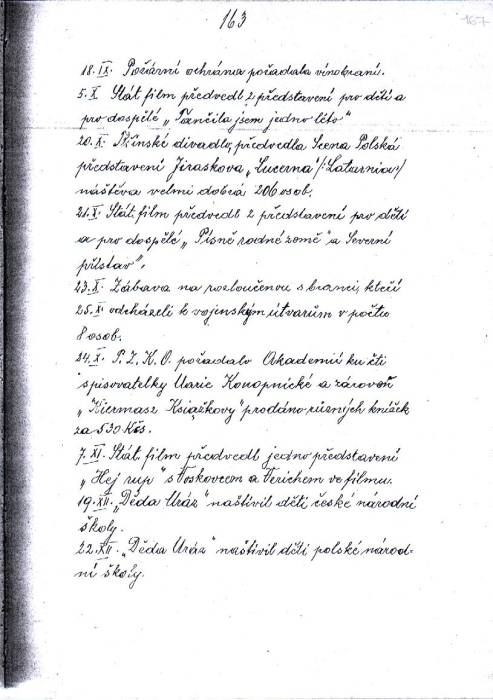 163
167
18.IX. Požární ochrana pořádala vinobraní.
5.X. Stát. film předvedl 2 představení pro děti a
pro dospělé „Tančila jsem jedno léto"
20.X. Těšínské divadlo, předvedla Scena Polská
představení Jiraskova „Lucerna"/:Latarnia:/
náštěva velmi dobrá 206 osob.
21.X. Stát. film předvedl 2 představení pro děti
a pro dospělé „Písně rodné země" a Severní
přístav".
23.X. Zábava na rozloučenou s branci, kteří
25.X. odcházeli k vojenským útvarům v počtu
8 osob.
24.X. P.Z.K.O. pořádalo Akademii ku cti
spisovatelky Marie Konopnické a zároveň
„Kiermasz Książkovy" prodáno různých knížek
za 530 Kčs.
7.XI. Stát. film předvedl jedno představení
„Hej rup" s Voskovcem a Verichem ve filmu.
19.XII. „Děda Mráz" naštívil děti české národní
školy.
22.XII. „Děda Mráz" naštívil děti polské národ-
ní školy.